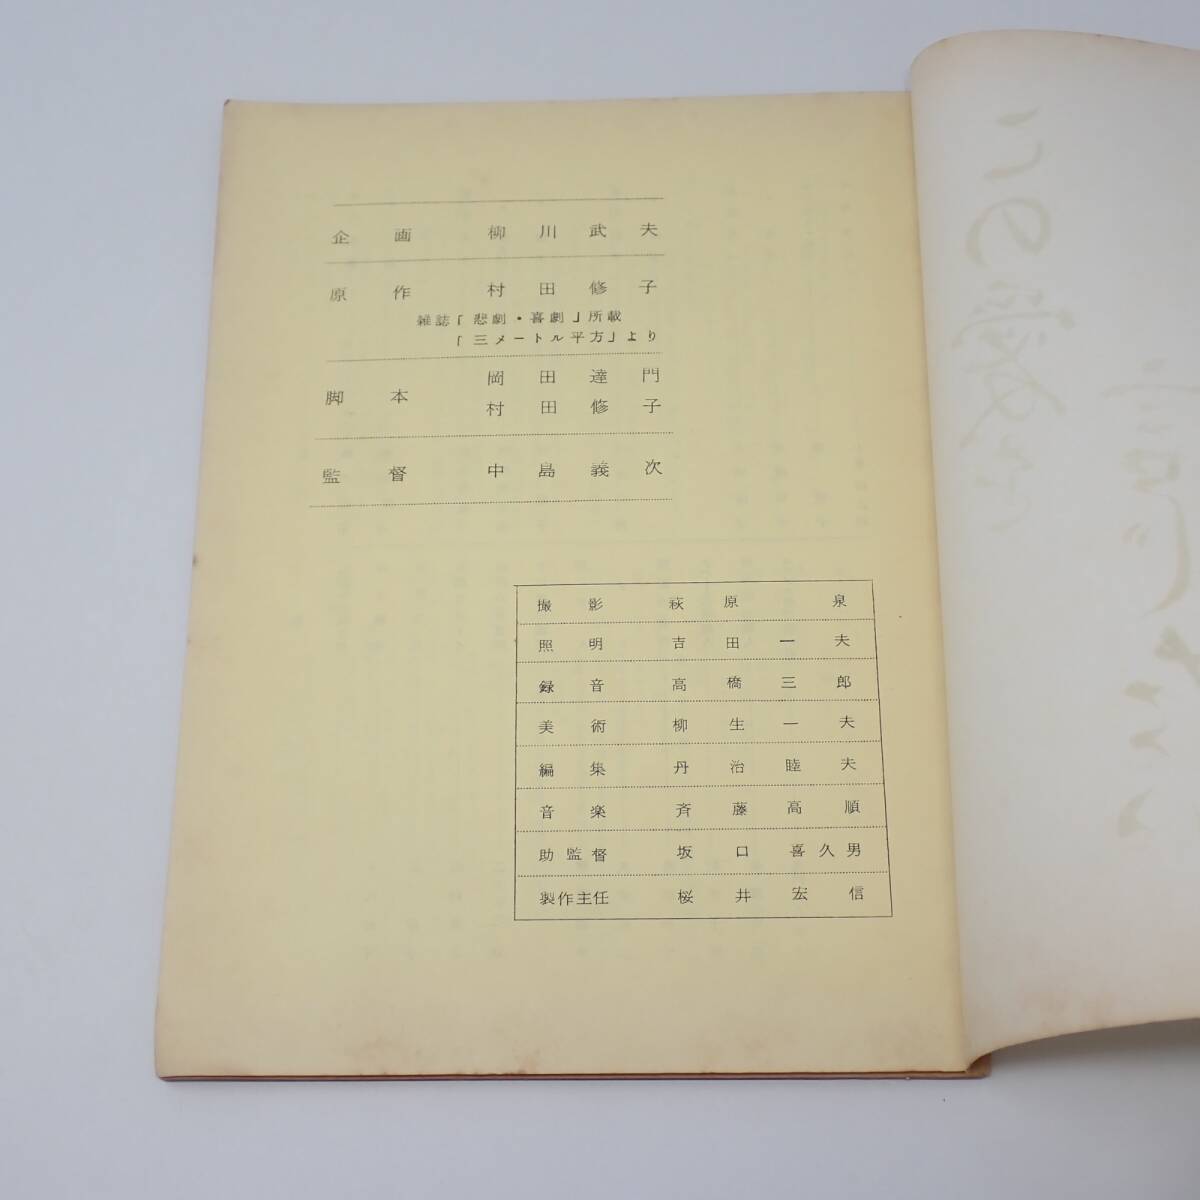 企画 柳川武夫
原作 村田修子
雑誌「悲劇・喜劇」所載
「三メートル平方」より
脚本 岡田達門
村田修子
監督 中島義次
撮影 萩原泉
照明 吉田一夫
録音 高橋三郎
美術 柳生一夫
編集 丹治睦夫
音楽 斉藤高順
助監督 坂口喜久男
製作主任 桜井宏信
この愛を
信じたい